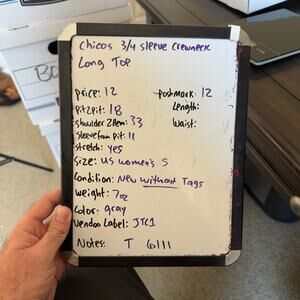 Chicos 3/4 sleeve crewneck
Long Top
price: 12
poshmark: 12
pit2pit: 18
Length:
shoulder2Hem: 33
Waist:
sleeve from pit: 11
stretch: yes
Size: US women's S
Condition: New without Tags
weight: 7oz
Color: gray
Vendoo Label: JTC1
Notes: T 6111